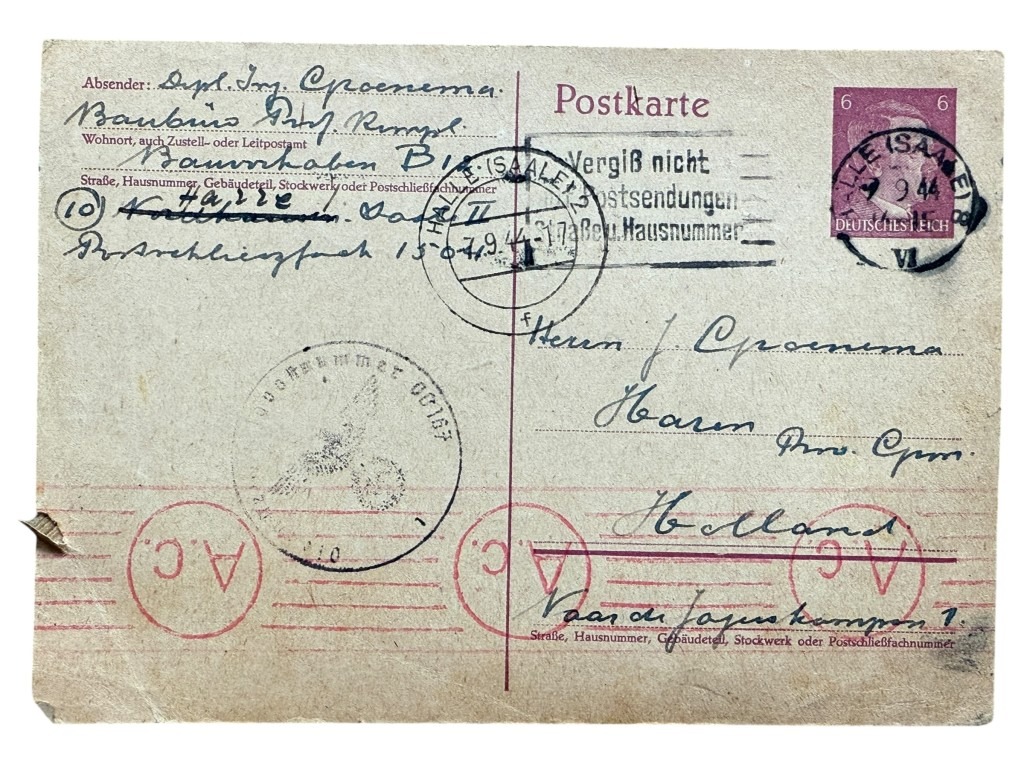 Absender: Dipl. Ing. Cpoenema.
Baubüro Prof. Rimpl.
Wohnort, auch Zustell- oder Leitpostamt
Bauvorhaben B12
Straße, Hausnummer, Gebäudeteil, Stockwerk oder Postschließfachnummer
Halle
(10) Nordhausen. Saale II
Postschliessfach 1504
Postkarte
6 6
DEUTSCHES REICH
Vergiß nicht
Postsendungen
Straße u. Hausnummer
HALLE (SAALE) 2
7.9.44.-17
f
HALLE (SAALE) 8
7 9 44
VI
Herrn J. Cpoenema
Haren
Prov. Cpon.
Holland
Naar de Jagerskampen 1.
Straße, Hausnummer, Gebäudeteil, Stockwerk oder Postschließfachnummer
00167
1
A.C. A.C. A.C.